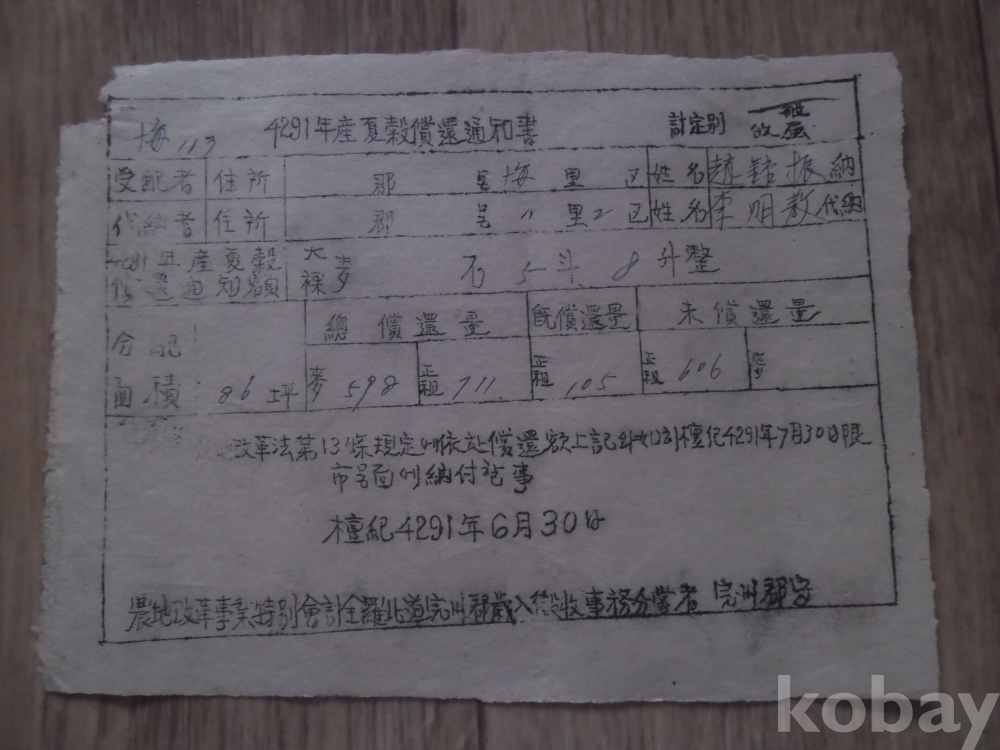 梅 113 4291年産夏穀償還通知書 計定別 一般
受配者 住所 郡 邑 梅 里 区 姓名 趙 振 納
代納者 住所 郡 邑 〃 里 2 区 姓名 李明教 代納
4291年産夏穀償還通知額 大麥 裸麥 石 5斗 8升整
分配面積 86坪 總償還量 旣償還量 未償還量
麥 598 正租 711 正租 105 正租 606 麥
農地改革法第13條規定에依한償還額上記와如히檀紀4291年7月30日限
市邑面에納付할事
檀紀4291年6月30日
農地改革事業特別會計全羅北道完州郡歲入徵收事務分掌者 完州郡守
kobay